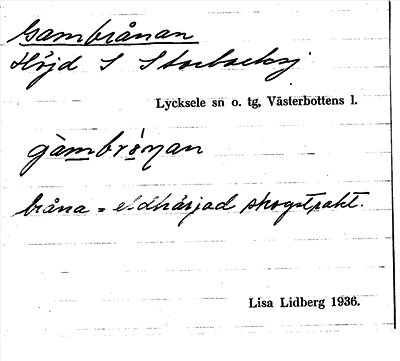 Gambrånan
Höjd S Storbacksj
Lycksele sn o. tg, Västerbottens l.
gàmbrǻnan
bråna = eldhärjad skogstrakt.
Lisa Lidberg 1936.